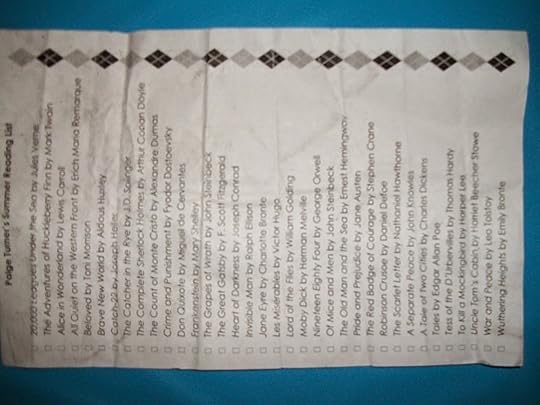 Paige Turner's Summer Reading List
20,000 Leagues Under the Sea by Jules Verne
The Adventures of Huckleberry Finn by Mark Twain
Alice in Wonderland by Lewis Carroll
All Quiet on the Western Front by Erich Maria Remarque
Beloved by Toni Morrison
Brave New World by Aldous Huxley
Catch-22 by Joseph Heller
The Catcher in the Rye by J.D. Salinger
The Complete Sherlock Holmes by Arthur Conan Doyle
The Count of Monte Cristo by Alexandre Dumas
Crime and Punishment by Fyodor Dostoevsky
Don Quixote by Miguel de Cervantes
Frankenstein by Mary Shelley
The Grapes of Wrath by John Steinbeck
The Great Gatsby by F. Scott Fitzgerald
Heart of Darkness by Joseph Conrad
Invisible Man by Ralph Ellison
Jane Eyre by Charlotte Bronte
Les Misérables by Victor Hugo
Lord of the Flies by William Golding
Moby Dick by Herman Melville
Nineteen Eighty Four by George Orwell
Of Mice and Men by John Steinbeck
The Old Man and the Sea by Ernest Hemingway
Pride and Prejudice by Jane Austen
The Red Badge of Courage by Stephen Crane
Robinson Crusoe by Daniel Defoe
The Scarlet Letter by Nathaniel Hawthorne
A Separate Peace by John Knowles
A Tale of Two Cities by Charles Dickens
Tales by Edgar Allan Poe
Tess of the D'Urbervilles by Thomas Hardy
To Kill a Mockingbird by Harper Lee
Uncle Tom's Cabin by Harriet Beecher Stowe
War and Peace by Leo Tolstoy
Wuthering Heights by Emily Bronte